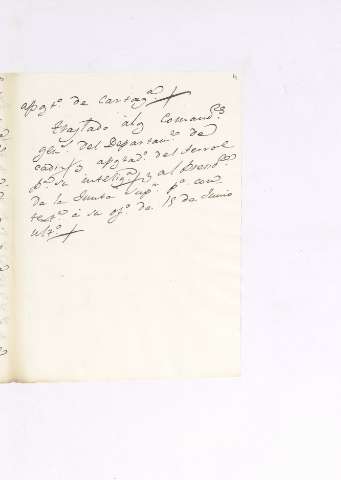 apgt.º de Cartag.ª
traslado alg Comand.es
gen.s del Departam.to de
Cadiz y apgtad.º del Ferrol
p.ª su intelig.ª y al Presid.te
de la Junta Sup.or p.r con
test.n á su of.º de 15 de Junio
ult.º